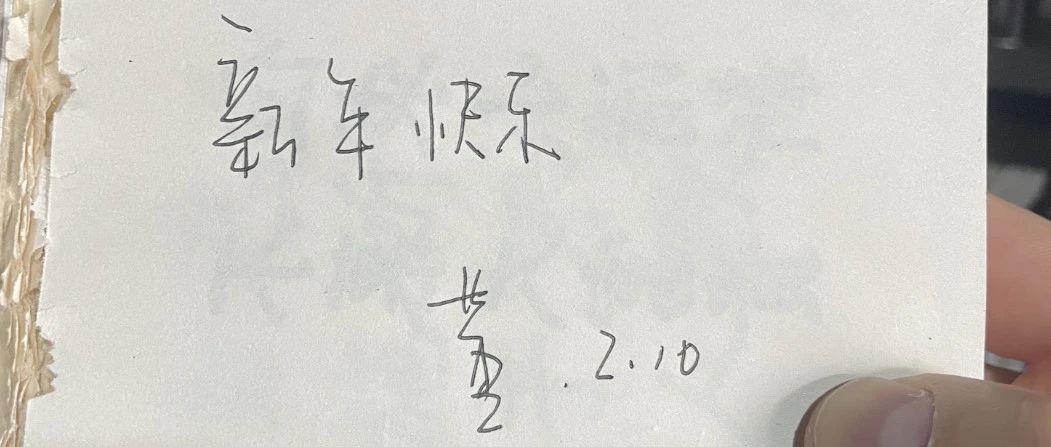 新年快乐
董.2.10